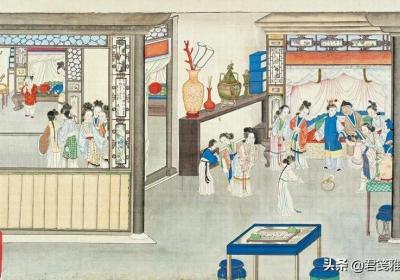 头条 @君笺雅